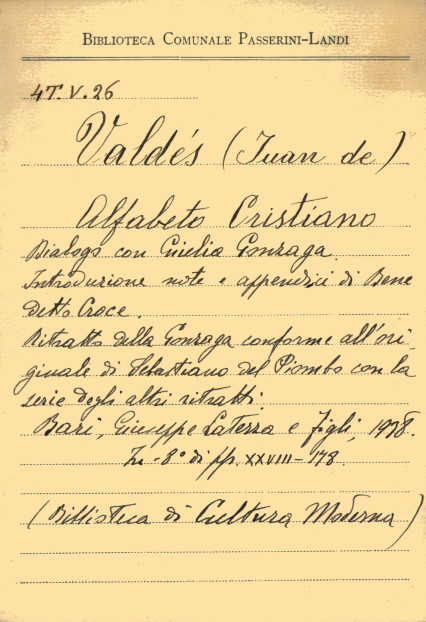 BIBLIOTECA COMUNALE PASSERINI-LANDI
4T.V.26
Valdés (Juan de)
Alfabeto Cristiano
Dialogo con Giulia Gonzaga.
Introduzione note e appendici di Bene
detto Croce.
Ritratto della Gonzaga conforme all'ori
ginale di Sebastiano del Piombo con la
serie degli altri ritratti.
Bari, Giuseppe Laterza e figli, 1938.
In-8° di pp. XXVIII-178.
(Biblioteca di Cultura Moderna)